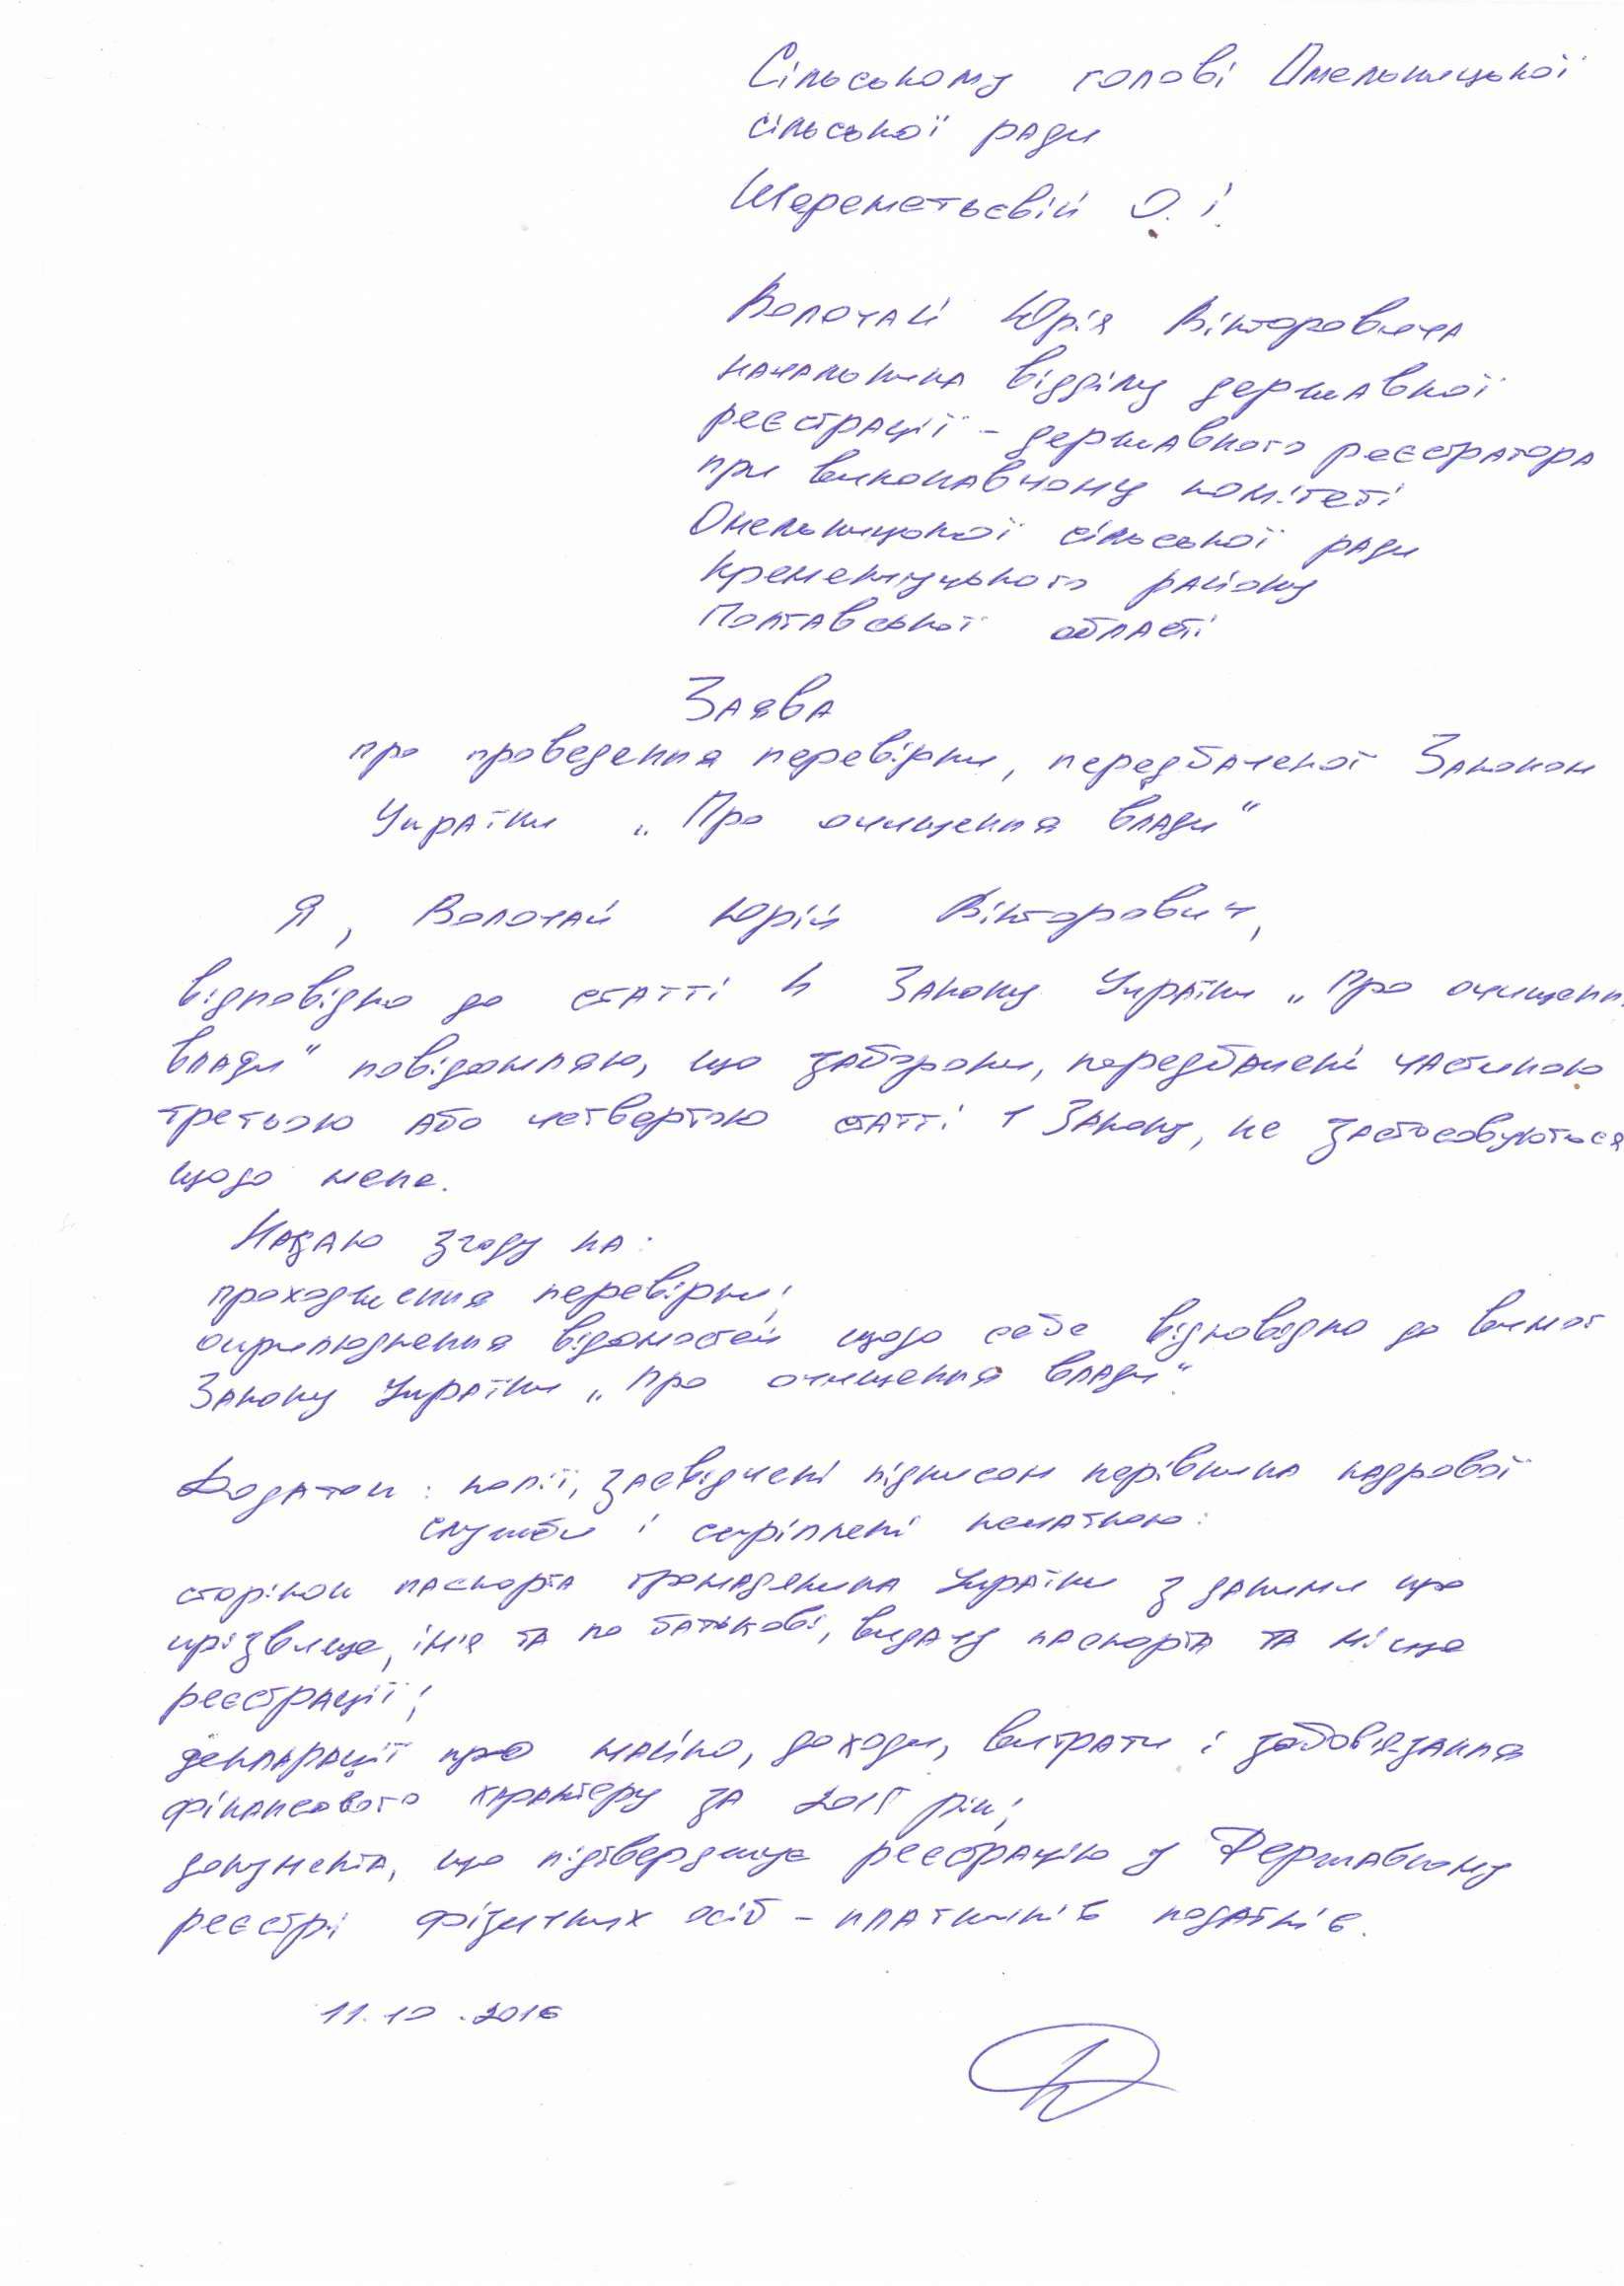 Сільському голові Омельницької
сільської ради
Шереметьєвій О. І.
Волочай Юрія Вікторовича
начальника відділу державної
реєстрації - державного реєстратора
при виконавчому комітеті
Омельницької сільської ради
Кременчуцького району
Полтавської області
Заява
про проведення перевірки, передбаченої Законом
України „Про очищення влади"
Я, Волочай Юрій Вікторович,
відповідно до статті 4 Закону України „Про очищенн
влади" повідомляю, що заборони, передбачені частиною
третьою або четвертою статті 1 Закону, не застосовуються
щодо мене.
Надаю згоду на:
проходження перевірки;
оприлюднення відомостей щодо себе відповідно до вимог
Закону України „Про очищення влади".
Додаток: копії, засвідчені підписом керівника кадрової
служби і скріплені печаткою:
сторінок паспорта громадянина України з даними про
прізвище, ім'я та по батькові, видачу паспорта та місце
реєстрації;
декларації про майно, доходи, витрати і зобов'язання
фінансового характеру за 2015 рік;
документа, що підтверджує реєстрацію у Державному
реєстрі фізичних осіб - платників податків.
11.10.2016